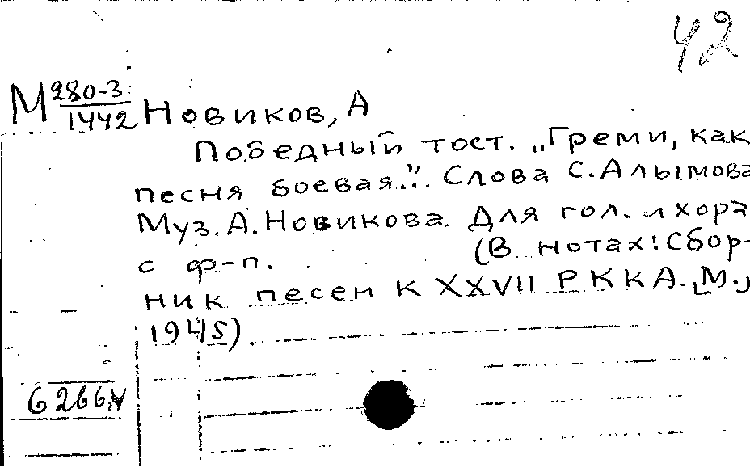 42
М 280-3
1442 Новиков, А
Победный тост. „Греми, как
песня боевая..." Слова С. Алымова
Муз. А. Новикова. Для гол. и хора
с ф-п. (В нотах: Сбор-
ник песен к XXVII РККА. М.,
1945).
6266